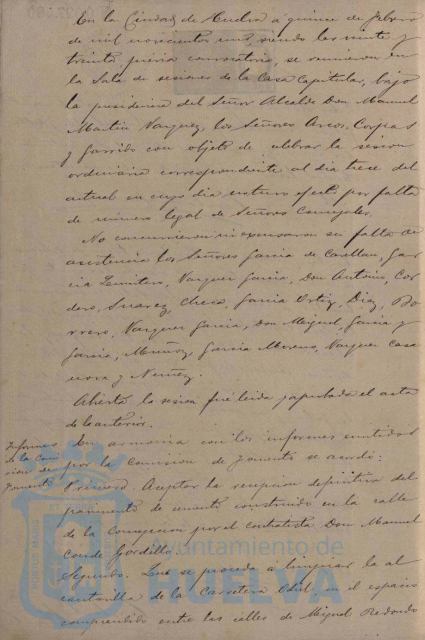 En la Ciudad de Huelva á quince de Febrero
de mil novecientos uno, siendo las nueve y
treinta, previa convocatoria, se reunieron en
la Sala de sesiones de la Casa Capitular, bajo
la presidencia del Señor Alcalde Don Manuel
Martin Vazquez, los Señores Arcos, Corpas
y Garrido con objeto de celebrar la sesion
ordinaria correspondiente al dia trece del
actual en cuyo dia no tuvo efecto por falta
de número legal de Señores Concejales.
No concurrieron ni excusaron su falta de
asistencia los Señores Garcia de Casellas, Gar
cia Vazquez Garcia, Don Antonio, Cor
dero, Suarez, Checa, Garcia Ortiz, Diaz, Bo
rrero, Vazquez Garcia, Don Miguel, Garcia y
Garcia, Muñoz, Garcia Moreno, Vazquez Casa
nova y Nuñez.
Abierta la sesion fué leida y aprobada el acta
de la anterior.
Informes
de la Comi
sion de
Fomento
En armonia con los informes emitidos
por la Comision de Fomento se acordó:
Primero. Aceptar la recepcion definitiva del
pavimento de cemento construido en la calle
de la Concepcion por el contratista Don Manuel
Conde Gordillo.
Segundo. Que se proceda á limpiar la al
cantarilla de la Carretera Odiel, en el espacio
comprendido entre las calles de Miguel Redondo
Ayuntamiento de
HUELVA